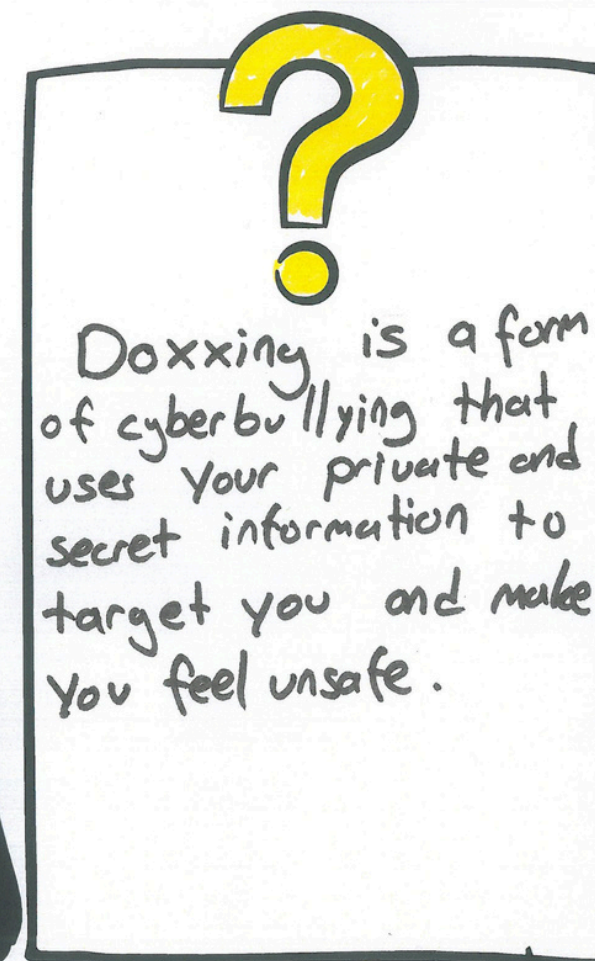 ?
Doxxing is a form
of cyberbullying that
uses your private and
secret information to
target you and make
you feel unsafe.